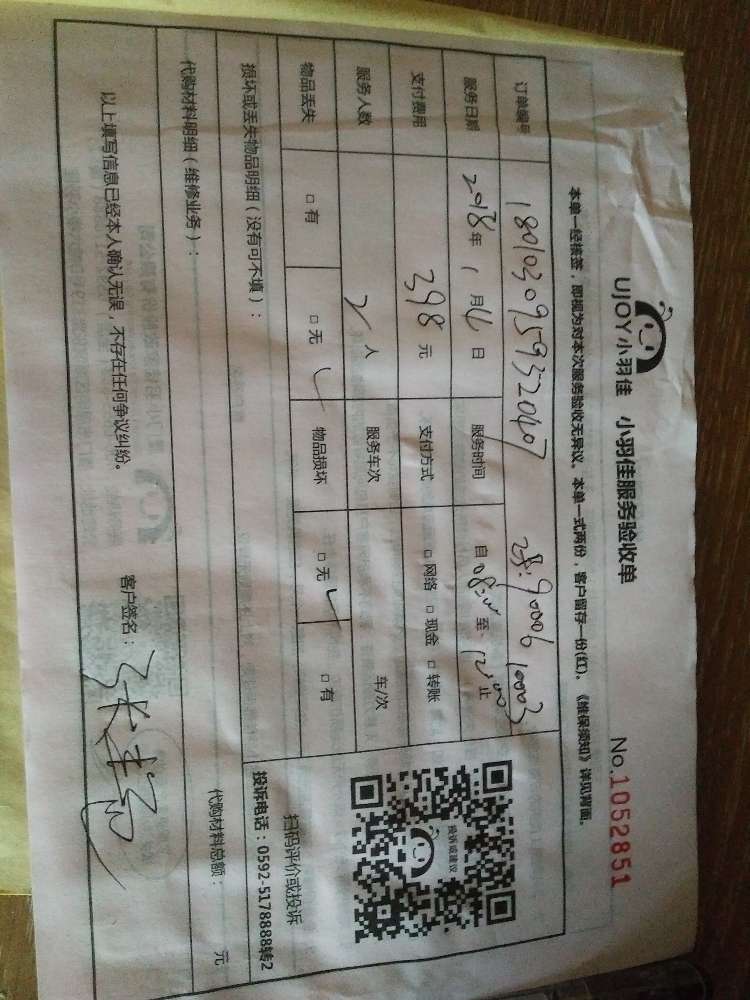 UJOY小羽佳 小羽佳服务验收单
No.1052851
本单一经核签，即视为对本次服务验收无异议。本单一式两份，客户留存一份(红)。《维保须知》详见背面。
订单编号 180103095952047 90006 10003
服务日期 2018年1月6日 服务时间 自08:00至12:00止
支付费用 398元 支付方式 □网络 □现金 □转账
服务人数 2人 服务车次 车/次
物品丢失 □有 □无 ✓ 物品损坏 □无 ✓ □有
损坏或丢失物品明细（没有可不填）：
代购材料明细（维修业务）： 代购材料总额： 元
以上填写信息已经本人确认无误，不存在任何争议纠纷。 客户签名：
投诉或建议
扫码评价或投诉
投诉电话：0592-5178888转2